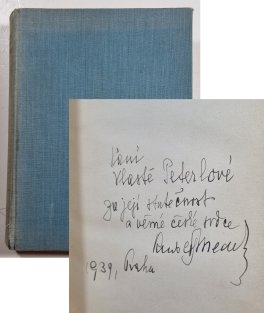 Paní
Vlastě Peterlové
za její statečnost
a věrné české srdce
Rudolf Medek
1939, Praha